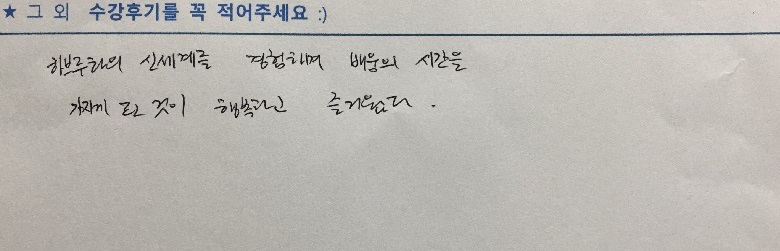 ★ 그 외 수강후기를 꼭 적어주세요 :)
하브루타의 신세계를 경험하며 배움의 시간을
가지게 된 것이 행복하고 즐거웠다.